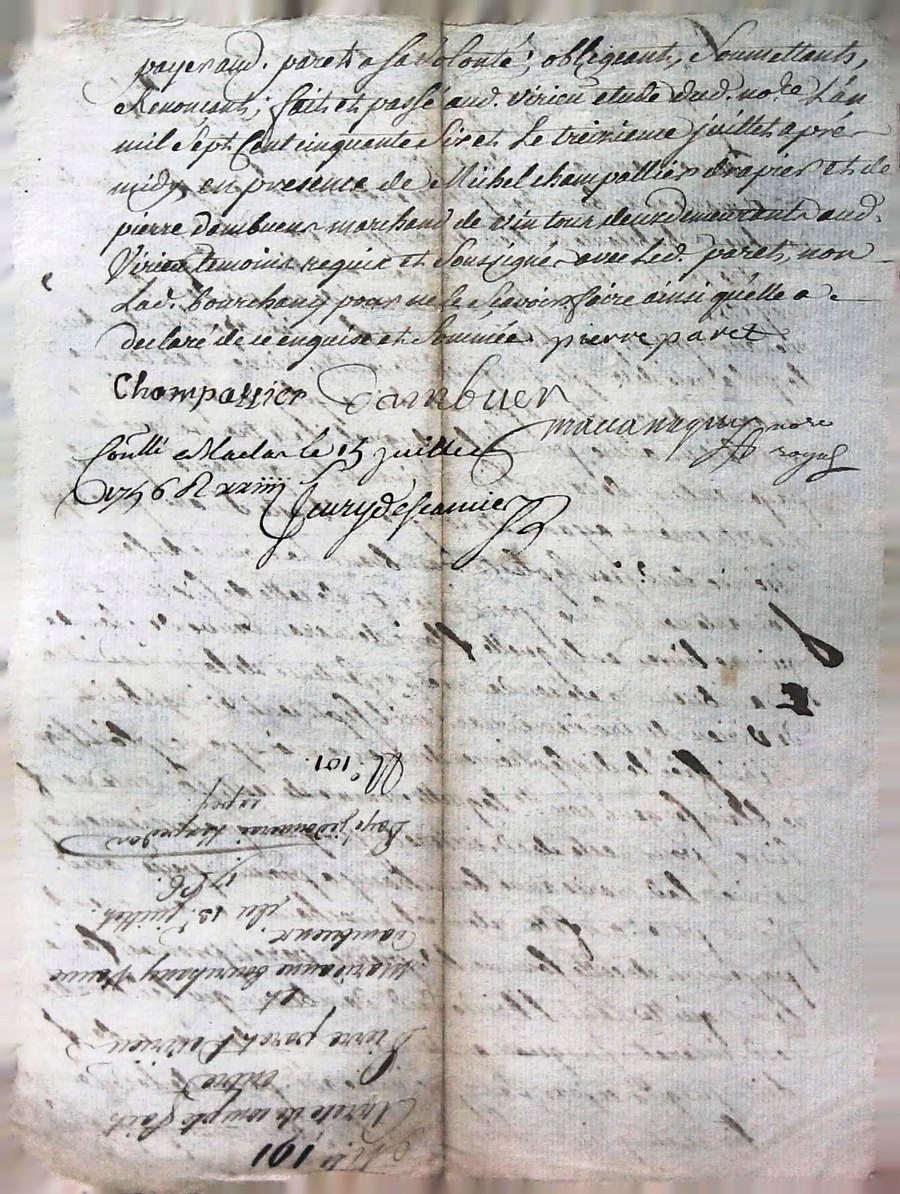 payer aud. paret a sa volonté; obligeant, Soumettant,
Renonçant; fait et passé aud. virieu etude dud. no.re L'an
mil Sept Cent cinquante Six et Le treizieme juillet aprés
midy, en presence de Michel champallier drapier et de
pierre dambuent marchand de vin tous deux demeurants aud.
Virieu temoins requis et Soussignés avec Led. paret, non
Lad. bourchany pour ne le Scavoir faire ainsi qu'elle a
declaré de ce enquise et Sommée pierre paret
Champallier Dambuent
notre
royal
Conllé a Maclas le 15 juillet
1756 R xxiiii s
N.° 101.
du 13.e juillet
1756
Marianne bourchany veuve
dambuent
et
Pierre paret de virieu
entre
Arreté de compte fait
101